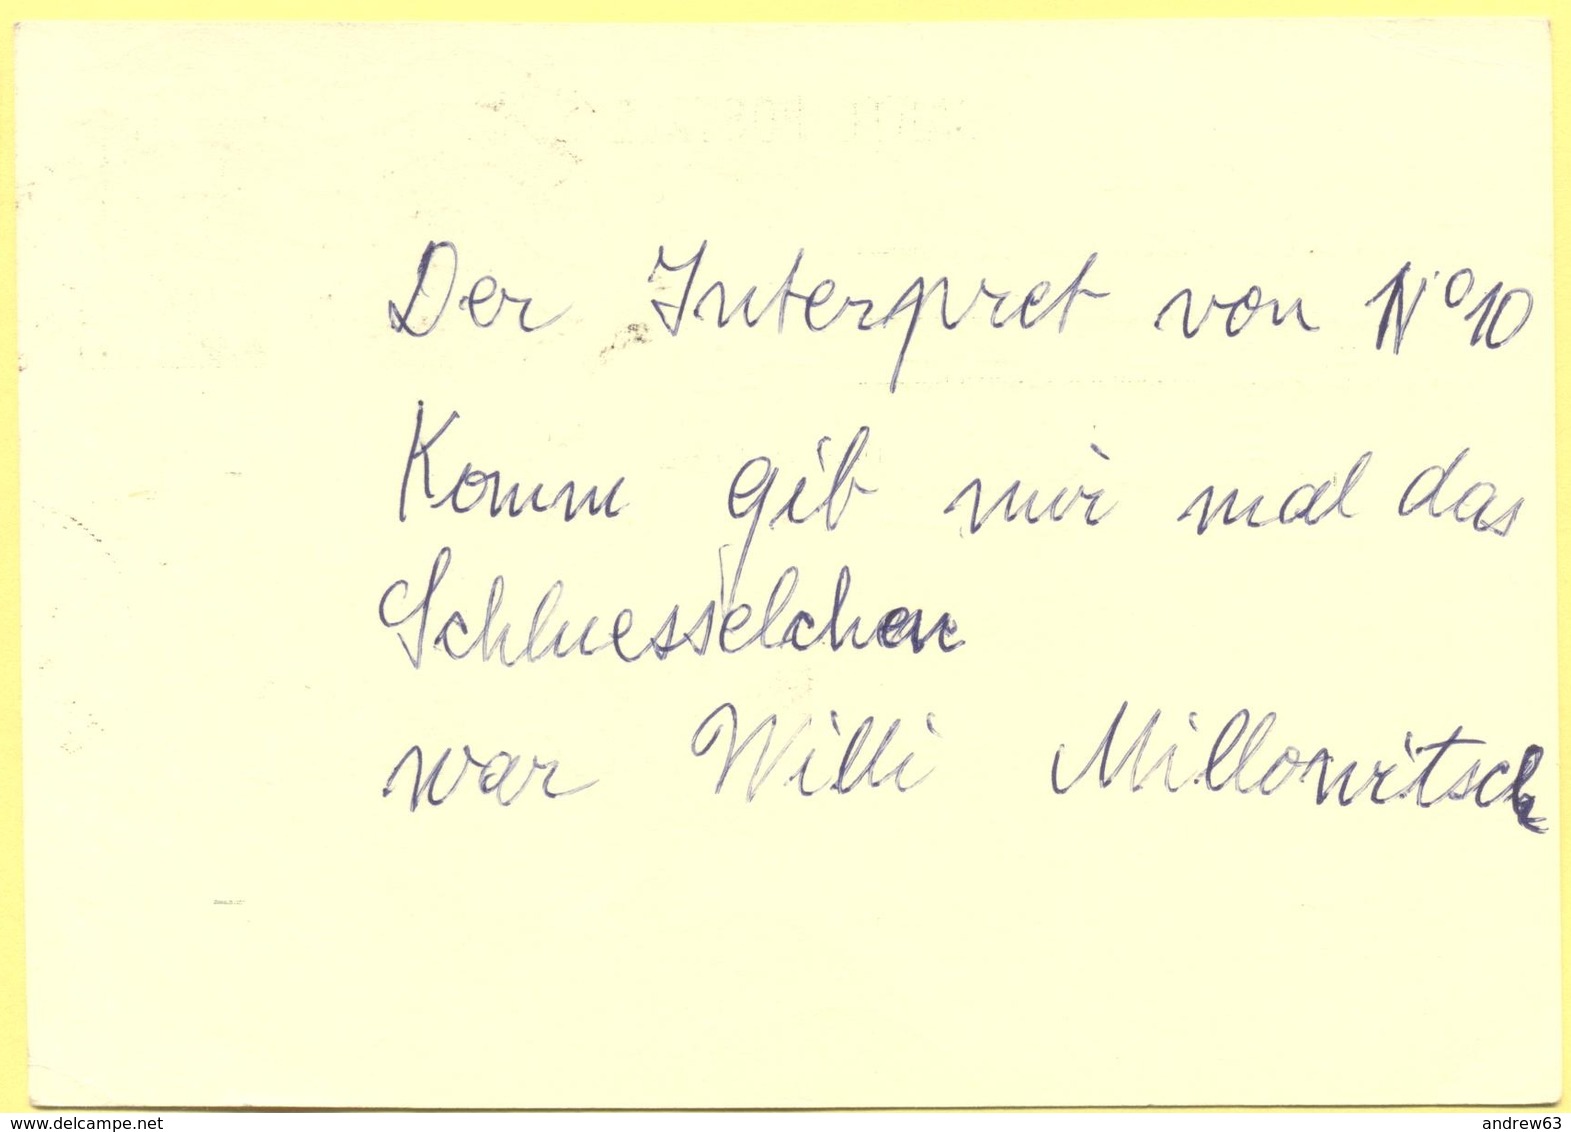 Der Interpret von N° 10
Komm gib mir mal das
Schluesselchen
war Willi Millowitsch
www.delcampe.net
andrew63